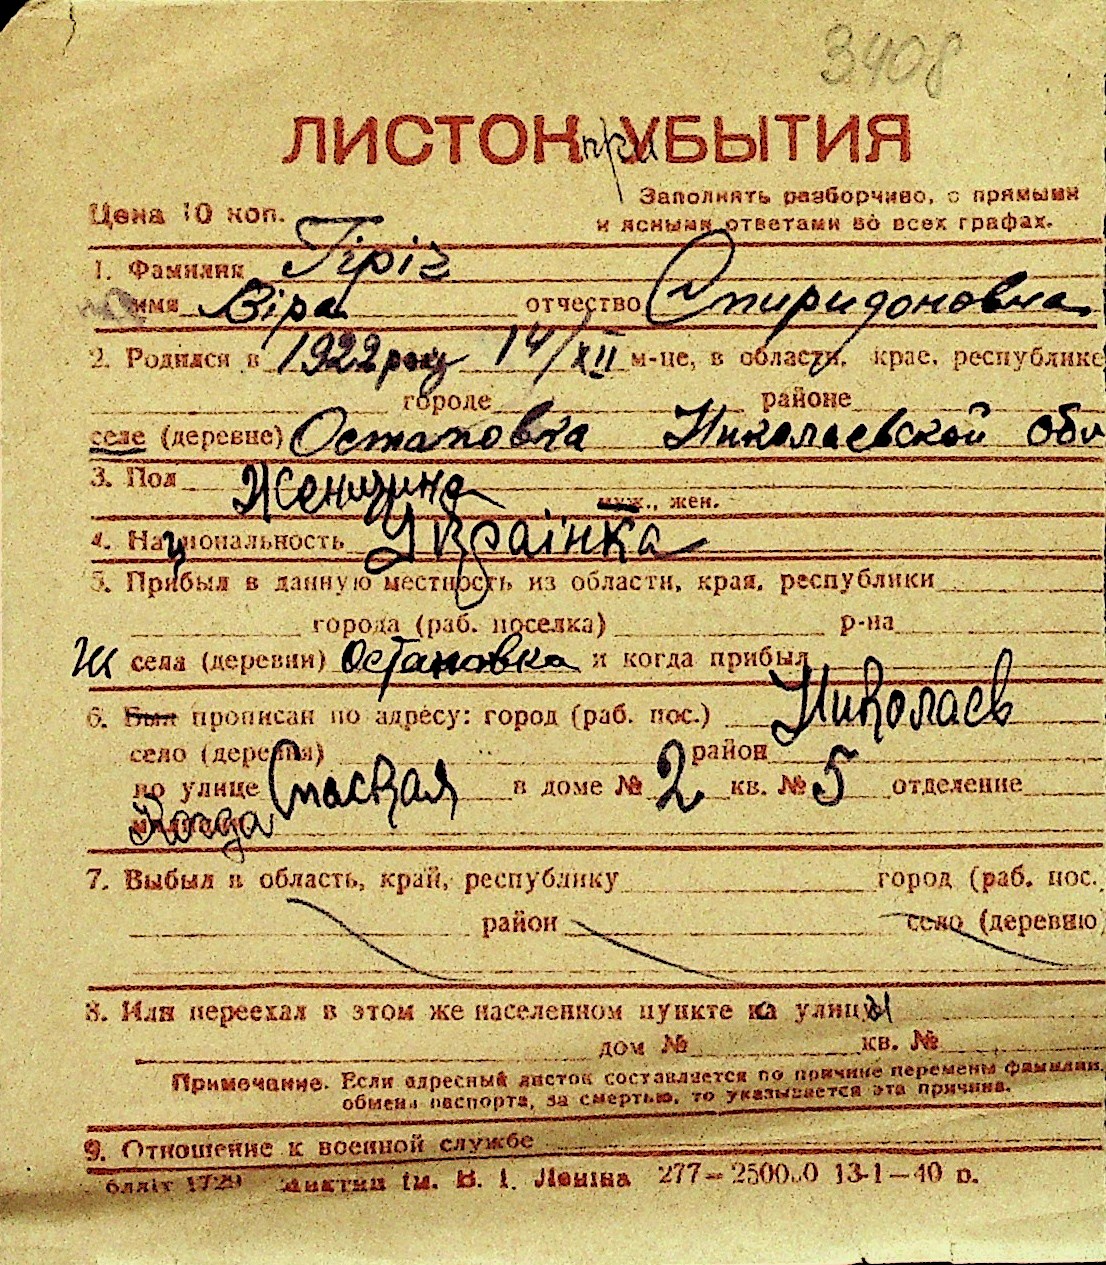 3408
ЛИСТОК при УБЫТИЯ
Цена 10 коп.
Заполнять разборчиво, с прямыми
и ясными ответами во всех графах.
1. Фамилия Гіріг
имя Віра отчество Спиридоновна
2. Родился в 1922 року 14/XII м-це, в области, крае, республике
городе районе
селе (деревне) Остаповка Николаевской обл
3. Пол Женщина муж., жен.
4. Национальность Українка
5. Прибыл в данную местность из области, края, республики
города (раб. поселка) р-на
из села (деревни) Остаповка и когда прибыл
6. Был прописан по адресу: город (раб. пос.) Николаев
село (деревня) район
по улице Спаская в доме № 2 кв. № 5 отделение
Когда
7. Выбыл в область, край, республику город (раб. пос.
район село (деревню)
8. Или переехал в этом же населенном пункте на улицы
дом № кв. №
Примечание. Если адресный листок составляется по причине перемены фамилии,
обмена паспорта, за смертью, то указывается эта причина.
9. Отношение к военной службе
1729 ім. В. І. Леніна 277— 13-1—40 р.